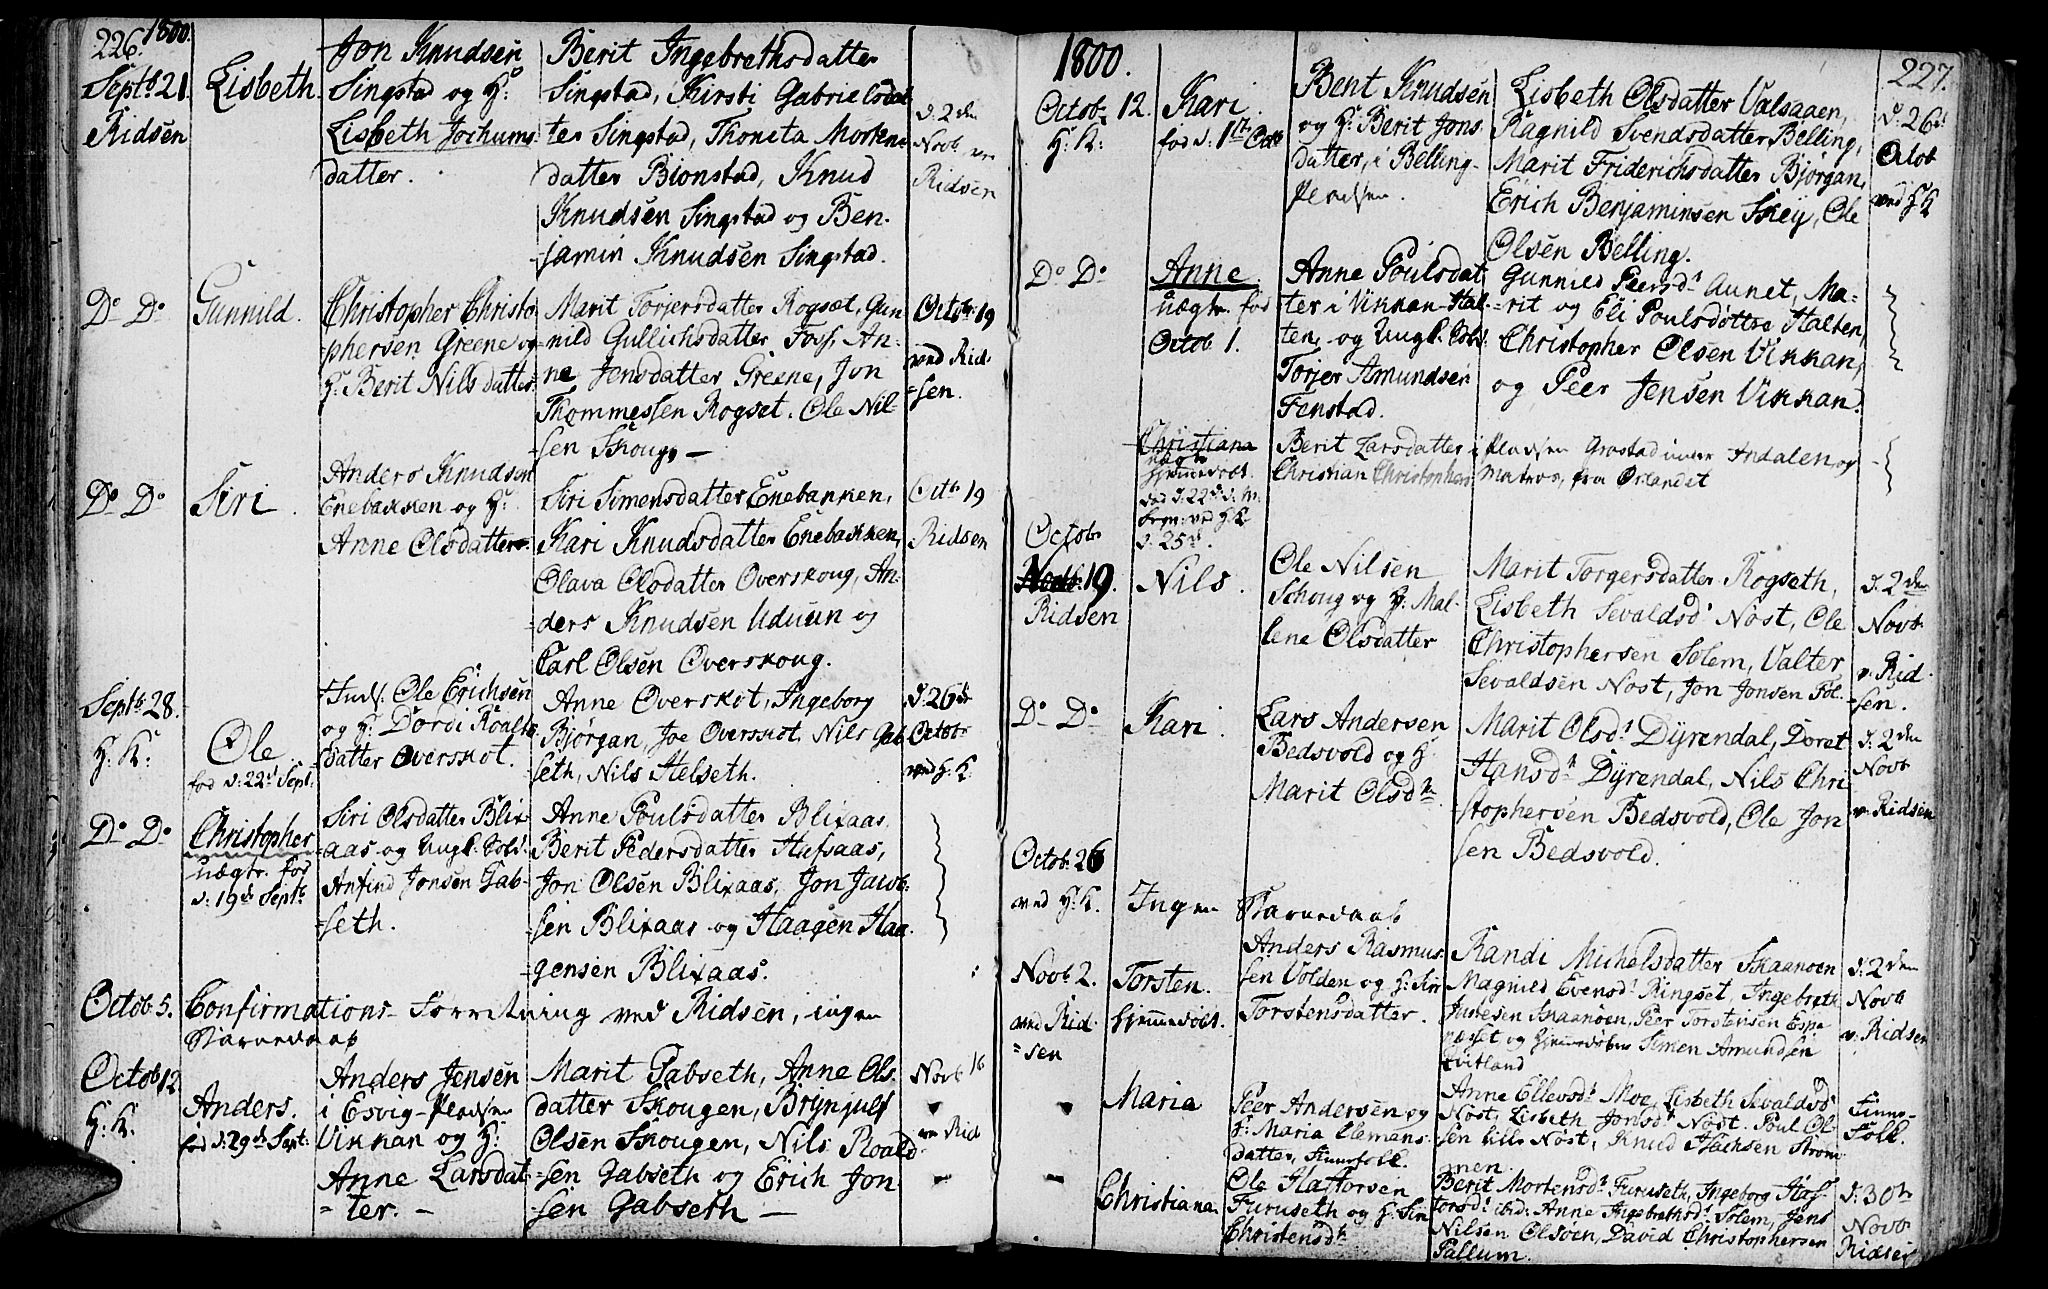 226. 1800.
Septb 21
Ridsen
Lisbeth.
Jon Knudsen
Singstad og H:
Lisbeth Jochums
datter.
Berit Ingebrethsdatter
Singstad, Kirsti Gabrielsdat
ter Singstad, Thoneta Mortens
datter Bionstad, Knud
Knudsen Singstad og Ben-
jamin Knudsen Singstad.
d. 2 den
Novb
Ridsen
Do Do
Gunnild.
Christopher Christo
phersen Greene og
H: Berit Nilsdatter
Marit Torjersdatter Rogset, Gun
nild Gullichsdatter Foss, An-
ne Jensdatter Greene, Jon
Thommessen Rogset. Ole Nil-
sen Skoug. —
Octb: 19
ved Rid-
sen.
Do Do
Siri.
Anders Knudsen
Enebakken og H:
Anne Olsdatter.
Siri Simensdatter Enebakken,
Kari Knudsdatter Enebakken,
Olava Olsdatter Overskoug, An-
ders Knudsen Uduun og
Carl Olsen Overskoug.
Octb 19
Ridsen
Septb 28.
H: K:
Ole
fød d: 22d Sept:
Ole Erichsen
og H: Dordi Roalds
datter Overskot.
Anne Overskot, Ingeborg
Bjørgan, Joe Overskot, Nils Gab
seth, Nils Helseth.
d. 26de
Octob
ved H. K.
Do Do
Christopher
uægte. fød
d: 19de Septb
Siri Olsdatter Blix
aas og Ungk. Sold:
Anfind Jonsen Gab-
seth.
Anne Poulsdatter Blixaas,
Berit Pedersdatter Hafsaas,
Jon Olsen Blixaas, Jon Jacob-
sen Blixaas og Haagen Haa-
gensen Blixaas.
Octob 5.
Confirmations-Forretning ved Ridsen, ingen
Barnedaab
Octob 12
H: K:
Anders.
fød d: 29de Sept:
Anders Jensen
i Esvig-Pladsen
Vikkan og H:
Anne Larsdat
ter. —
Marit Gabseth, Anne Ols-
datter Skougen, Brynjulf
Olsen Skougen, Nils Roald
sen Gabseth og Erich Jon-
sen Gabseth —
Novb 16
ve Rid
1800.
227.
Octob 12.
H: K:
Kari
fød d: 1ste Octb
Bent Knudsen
og H: Berit Jons
datter, i Belling-
Pladsen.
Lisbeth Olsdatter Valsaaen,
Ragnild Svendsdatter Belling,
Marit Friderichsdatter Bjørgan,
Erich Benjaminsen Skey, Ole
Olsen Belling.
d: 26de
Octob
ved H K
Do Do
Anne.
uægte. fød
Octob 1.
Anne Poulsdat
ter i Vikkan-Hal
ten, og Ungk. Sold:
Torjer Amundsen
Fenstad.
Gunnild Peersdr Aunet, Ma-
rit og Eli Poulsdøttre Halten,
Christopher Olsen Vikkan,
og Peer Jensen Vikkan.
Christiana
uægte
hjemmedøbt
ved H K
d. 25de.
Berit Larsdatter i Pladsen Grøstad under Indalen og
Christian Christophers Matros, fra Ørlandet
Octobr
Novb. 19.
Ridsen
Nils.
Ole Nilsen
Schoug og H: Mal-
lene Olsdatter
Marit Torgersdatter Rogseth,
Lisbeth Sevaldsdr Nøst, Ole
Christophersen Solem, Valter
Sevaldsen Nøst, Jon Jonsen Fol-
d. 2 den
Novb
v. Rid-
sen.
Do Do
Kari
Lars Andersen
Bedsvold og H
Marit Olsdtr
Marit Olsdr Dyrendal, Doret
Hansdr Dyrendal, Nils Chri
stophersen Bedsvold, Ole Jon
sen Bedsvold.
d. 2 den
Novb
v. Ridsen
Octob. 26
ved H. K.
Ingen Barnedaab
Novb 2.
ved Rid-
sen
Torsten.
hjemmedøbt.
Anders Rasmus
sen Volden og H: Siri
Torstensdatter.
Randi Michelsdatter Skaanøen
Magnild Evensdr Ringset, Ingebreth
Jensen Skaanøen, Peer Torstensen Espe
næsset og Hjemmedøber Simen Amundsen
Qvitland
d. 2 den
Novb
v. Ridsen
Maria
Peer Andersen og
H: Maria Clemens
datter, Finnefolk.
Anne Ellevsdr Moe, Lisbeth Sevaldsdr
Nøst, Lisbeth Jonsdr Nøst. Poul Ol-
sen Lille Nøst, Knud Isachsen Strøm
men.
Finne-
Folk.
Christiana.
Ole Haftorsen
Furuseth og H: Siri
Christensdtr
Berit Mortensdr Furuseth, Ingeborg Haf-
torsdr ibid: Anne Ingebrethsdr Solem, Jens
Nilsen Olsøen, David Christophersen
Pallum.
d. 30te
Novb
Ridsen